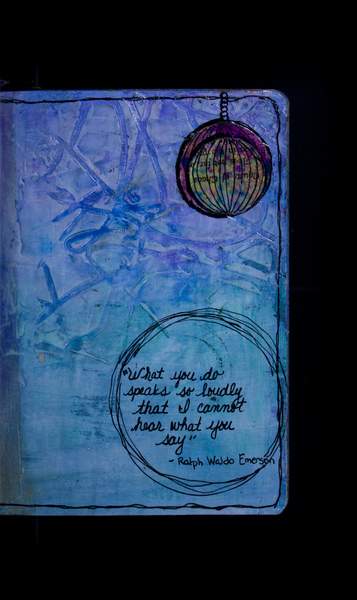 "What you do
speaks so loudly
that I cannot
hear what you
say"
- Ralph Waldo Emerson